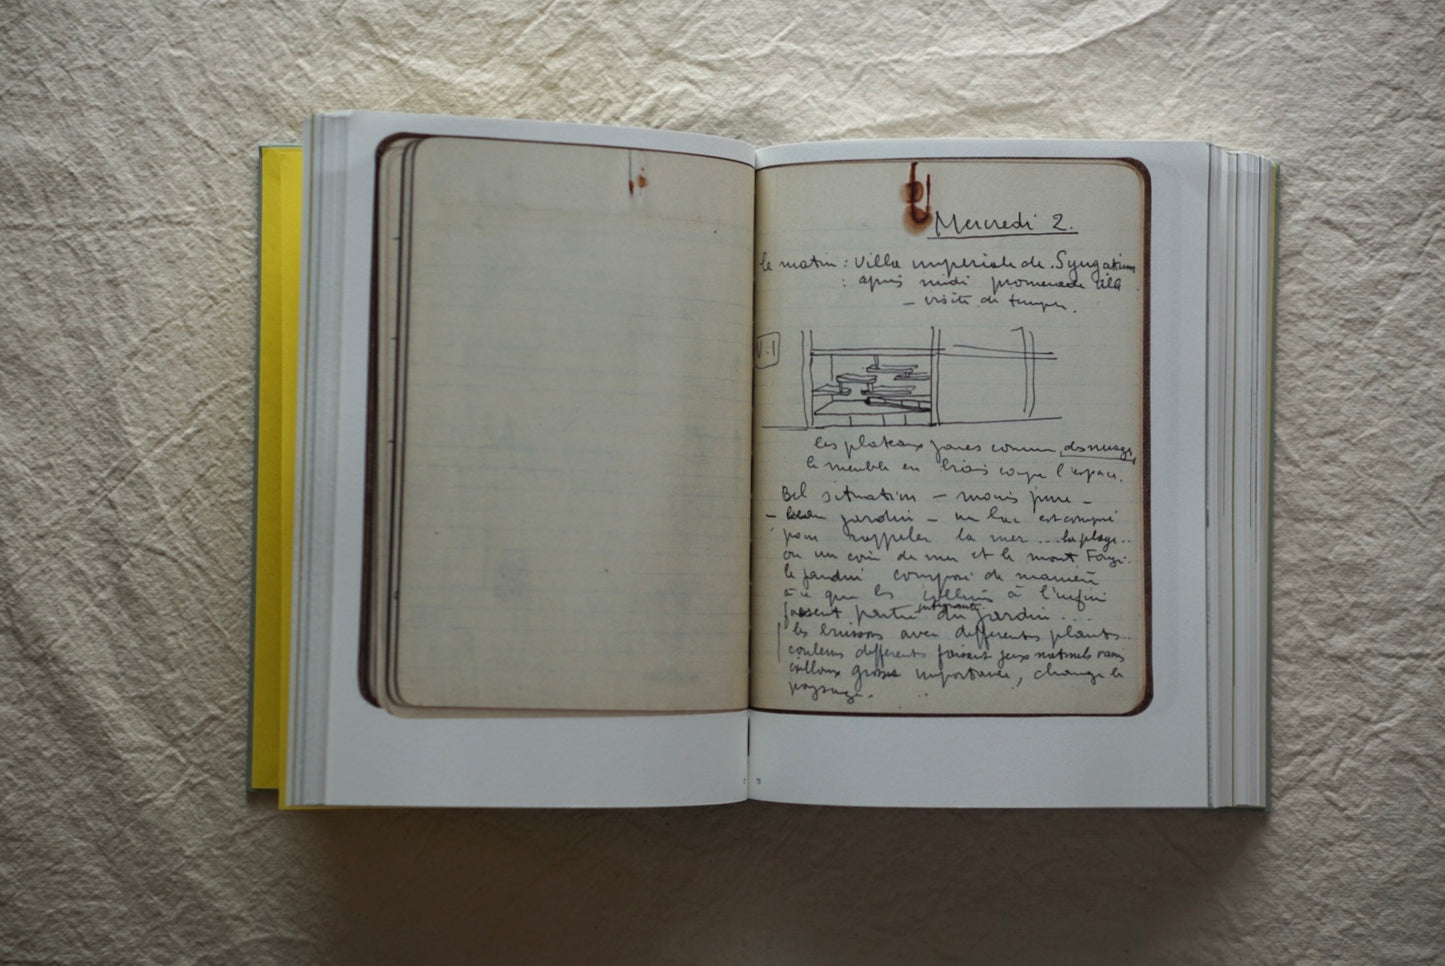 Mercredi 2.
le matin : Villa imperiale de Syugakuin
: après midi promenade villa
– visite de temples.
V.1
les plateaux jaunes comme des nuages,
le meuble en bois coupe l'espace.
Bel situation – mais pure –
– beau jardin – un lac est composé
pour rappeler la mer ... la plage..
ou un coin de mer et le mont Fouji.
le jardin composé de manière
à ce que les collines à l'infini
fassent partie intégrante du jardin ...
les buissons avec differents plants...
couleurs differents faisant jeux naturels
cailloux grosse importance, change le
paysage.